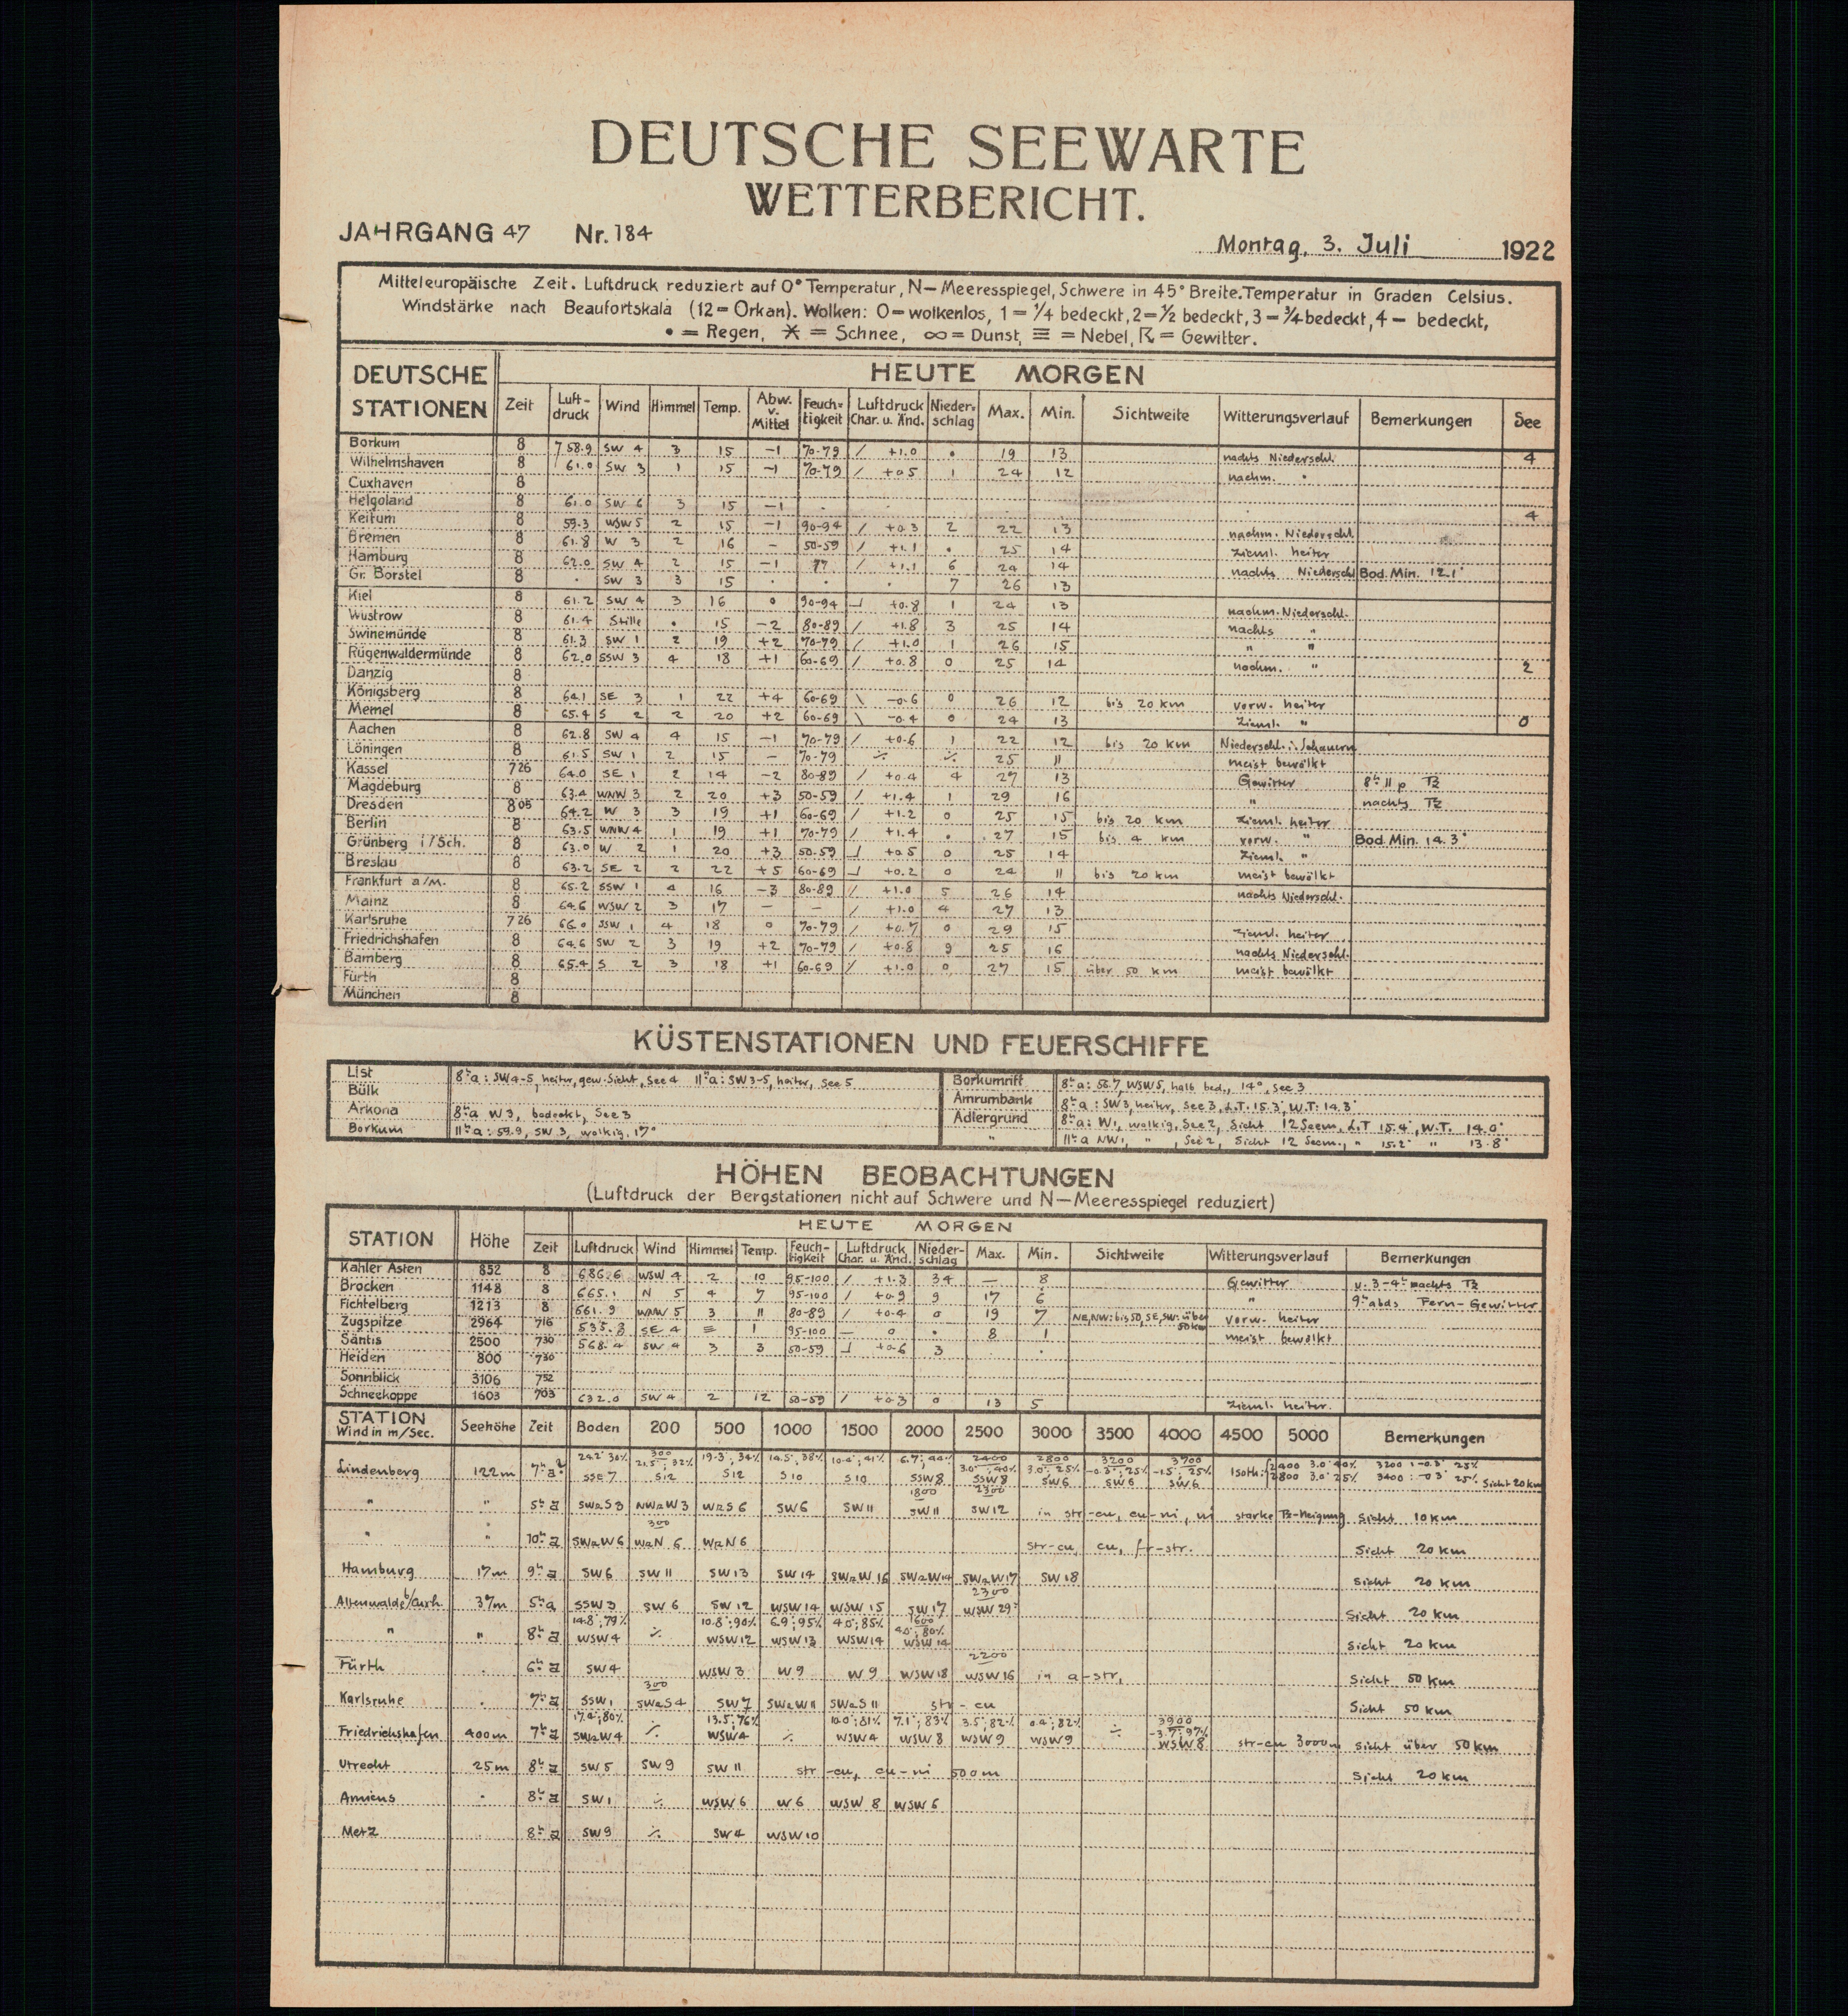 DEUTSCHE SEEWARTE
WETTERBERICHT.
JAHRGANG 47 Nr. 184 Montag, 3. Juli 1922
Mitteleuropäische Zeit. Luftdruck reduziert auf 0° Temperatur, N—Meeresspiegel, Schwere in 45° Breite. Temperatur in Graden Celsius.
Windstärke nach Beaufortskala (12=Orkan). Wolken: 0=wolkenlos, 1=¼ bedeckt, 2=½ bedeckt, 3=¾ bedeckt, 4— bedeckt,
• = Regen, ✶ = Schnee, ∞ = Dunst, ≡ = Nebel, ☈ = Gewitter.
DEUTSCHE STATIONEN HEUTE MORGEN
Zeit Luft-druck Wind Himmel Temp. Abw. v. Mittel Feuch-tigkeit Luftdruck Char. u. Änd. Nieder-schlag Max. Min. Sichtweite Witterungsverlauf Bemerkungen See
Borkum 8 758.9 SW 4 3 15 —1 70-79 / +1.0 • 19 13 nachts Niederschl. 4
Wilhelmshaven 8 61.0 SW 3 1 15 —1 70-79 / +0.5 1 24 12 nachm. "
Cuxhaven 8
Helgoland 8 61.0 SW 6 3 15 —1 . . . . . . 4
Keitum 8 59.3 WSW 5 2 15 —1 90-94 / +0.3 2 22 13 nachm. Niederschl.
Bremen 8 61.8 W 3 2 16 — 50-59 / +1.1 • 25 14 zieml. heiter
Hamburg 8 62.0 SW 4 2 15 —1 77 / +1.1 6 24 14 nachts Niederschl Bod. Min. 12.1°
Gr. Borstel 8 . SW 3 3 15 . . . 7 26 13
Kiel 8 61.2 SW 4 3 16 0 90-94 +0.8 1 24 13 nachm. Niederschl.
Wustrow 8 61.4 Stille • 15 —2 80-89 / +1.8 3 25 14 nachts "
Swinemünde 8 61.3 SW 1 2 19 +2 70-79 / +1.0 1 26 15 " "
Rügenwaldermünde 8 62.0 SSW 3 4 18 +1 60-69 / +0.8 0 25 14 nachm. " 2
Danzig 8
Königsberg 8 64.1 SE 3 1 22 +4 60-69 \ —0.6 0 26 12 bis 20 km vorw. heiter
Memel 8 65.4 S 2 2 20 +2 60-69 \ —0.4 0 24 13 zieml. " 0
Aachen 8 62.8 SW 4 4 15 —1 70-79 / +0.6 1 22 12 bis 20 km Niederschl. i. Schauern
Löningen 8 61.5 SW 1 2 15 — 70-79 ⁒ ⁒ 25 11 meist bewölkt
Kassel 7 26 64.0 SE 1 2 14 —2 80-89 / +0.4 4 27 13 Gewitter 8ʰ 11 p ☈
Magdeburg 8 63.4 WNW 3 2 20 +3 50-59 / +1.4 1 29 16 " nachts ☈
Dresden 8 05 64.2 W 3 3 19 +1 60-69 / +1.2 0 25 15 bis 20 km zieml. heiter
Berlin 8 63.5 WNW 4 1 19 +1 70-79 / +1.4 • 27 15 bis 4 km vorw. " Bod. Min. 14.3°
Grünberg i/Sch. 8 63.0 W 2 1 20 +3 50-59 +0.5 0 25 14 zieml. "
Breslau 8 63.2 SE 2 2 22 +5 60-69 +0.2 0 24 11 bis 20 km meist bewölkt
Frankfurt a/M. 8 65.2 SSW 1 4 16 —3 80-89 / +1.0 5 26 14 nachts Niederschl.
Mainz 8 64.6 WSW 2 3 17 — — / +1.0 4 27 13
Karlsruhe 7 26 66.0 SSW 1 4 18 0 70-79 / +0.7 0 29 15 zieml. heiter
Friedrichshafen 8 64.6 SW 2 3 19 +2 70-79 / +0.8 9 25 16 nachts Niederschl.
Bamberg 8 65.4 S 2 3 18 +1 60-69 / +1.0 0 27 15 über 50 km meist bewölkt
Fürth 8
München 8
KÜSTENSTATIONEN UND FEUERSCHIFFE
List 8ʰa: SW 4-5, heiter, gew. Sicht, See 4 11ʰa: SW 3-5, heiter, See 5
Bülk
Arkona 8ʰa W 3, bedeckt, See 3
Borkum 11ʰa: 59.9, SW 3, wolkig, 17°
Borkumriff 8ʰa: 56.7 WSW 5, halb bed., 14°, See 3
Amrumbank 8ʰa: SW 3, heiter, See 3, L.T. 15.3°, W.T. 14.3°
Adlergrund 8ʰa: W 1, wolkig, See 2, Sicht 12 Seem. L.T 15.4°, W.T. 14.0°
" 11ʰa NW 1, ", See 2, Sicht 12 Seem., " 15.2° " 13.8°
HÖHEN BEOBACHTUNGEN
(Luftdruck der Bergstationen nicht auf Schwere und N—Meeresspiegel reduziert)
STATION Höhe HEUTE MORGEN
Zeit Luftdruck Wind Himmel Temp. Feuch-tigkeit Luftdruck Char. u. Änd. Nieder-schlag Max. Min. Sichtweite Witterungsverlauf Bemerkungen
Kahler Asten 852 8 686.6 WSW 4 2 10 95-100 / +1.3 34 — 8 Gewitter v. 3-4ʰ nachts ☈
Brocken 1148 8 665.1 N 5 4 7 95-100 / +0.9 9 17 6 " 9ʰ abds Fern-Gewitter
Fichtelberg 1213 8 661.9 WNW 5 3 11 80-89 / +0.4 0 19 7 NE, NW: bis 50, SE, SW: über 50 km vorw. heiter
Zugspitze 2964 7 16 535.3 SE 4 ≡ 1 95-100 — 0 • 8 1 meist bewölkt
Säntis 2500 7 30 568.4 SW 4 3 3 50-59 +0.6 3 . .
Heiden 800 7 30
Sonnblick 3106 7 52
Schneekoppe 1603 7 03 632.0 SW 4 2 12 50-59 / +0.3 0 13 5 zieml. heiter.
STATION Wind in m/Sec. Seehöhe Zeit Boden 200 500 1000 1500 2000 2500 3000 3500 4000 4500 5000 Bemerkungen
24.2° 30% 300 21.5°; 32% 19.3°, 34% 14.5°, 38% 10.4°, 41% 6.7°, 44% 2400 3.0°, 40% 2800 3.0°, 25% 3200 —0.3°, 25% 3700 —1.5°, 25% Isoth: 2400 3.0° 40% 3200: —0.3° 25%
Lindenberg 122 m 7ʰ a SSE 7 S 12 S 12 S 10 S 10 SSW 8 SSW 8 SW 6 SW 6 SW 6 2800 3.0° 25% 3400: —0.3° 25% Sicht 20 km
1800 2300
" " 5ʰ a SWzS 3 NWzW 3 WzS 6 SW 6 SW 11 SW 11 SW 12 in str-cu, cu-ni, ni starke ☈-Neigung Sicht 10 km
300
" " 10ʰ a SWzW 6 WzN 6 WzN 6 str-cu, cu, fr-str. Sicht 20 km
Hamburg 17 m 9ʰ a SW 6 SW 11 SW 13 SW 14 SWzW 16 SWzW 14 SWzW 17 SW 18 Sicht 20 km
2300
Altenwalde b/Cuxh. 37 m 5ʰ a SSW 3 SW 6 SW 12 WSW 14 WSW 15 SW 17 WSW 29 Sicht 20 km
14.8°; 79% 10.8°; 90% 6.9°; 95% 4.0°; 85% 1600 4.0°; 80%
" " 8ʰ a WSW 4 ⁒ WSW 12 WSW 13 WSW 14 WSW 14 Sicht 20 km
2200
Fürth . 6ʰ a SW 4 WSW 3 W 9 W 9 WSW 18 WSW 16 in a-str, Sicht 50 km
300
Karlsruhe . 7ʰ a SSW 1 SWzS 4 SW 7 SWzW 11 SWzS 11 str-cu Sicht 50 km
17.4°; 80% 13.5°; 76% 10.0°; 81% 7.1°; 83% 3.5°; 82% 0.4°; 82% 3900 —3.7°; 97%
Friedrichshafen 400 m 7ʰ a SWzW 4 ⁒ WSW 4 ⁒ WSW 4 WSW 8 WSW 9 WSW 9 ⁒ WSW 8 str-cu 3000 m Sicht über 50 km
Utrecht 25 m 8ʰ a SW 5 SW 9 SW 11 str-cu, cu-ni 500 m Sicht 20 km
Amiens . 8ʰ a SW 1 ⁒ WSW 6 W 6 WSW 8 WSW 6
Metz . 8ʰ a SW 9 ⁒ SW 4 WSW 10